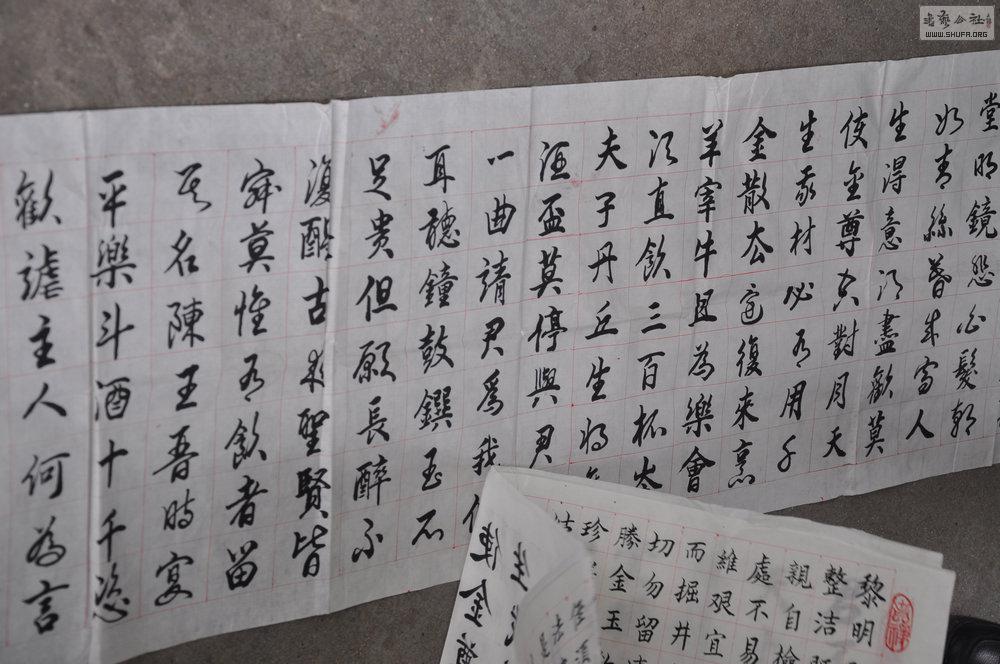 堂明鏡悲白髮朝
如青絲暮成雪人
生得意須盡歡莫
使金尊空對月天
生我材必有用千
金散盡還復來烹
羊宰牛且為樂會
須直飲三百杯
夫子丹丘生將
酒盃莫停與君
一曲請君爲我
耳聽鐘鼓饌玉不
足貴但願長醉不
復醒古來聖賢皆
寂寞惟有飲者留
其名陳王昔時宴
平樂斗酒十千恣
歡謔主人何為言
黎明
整洁
親自檢
處不易
維艱宜
而掘井
切勿留
勝金玉
珍
使金
WWW.SHUFA.ORG